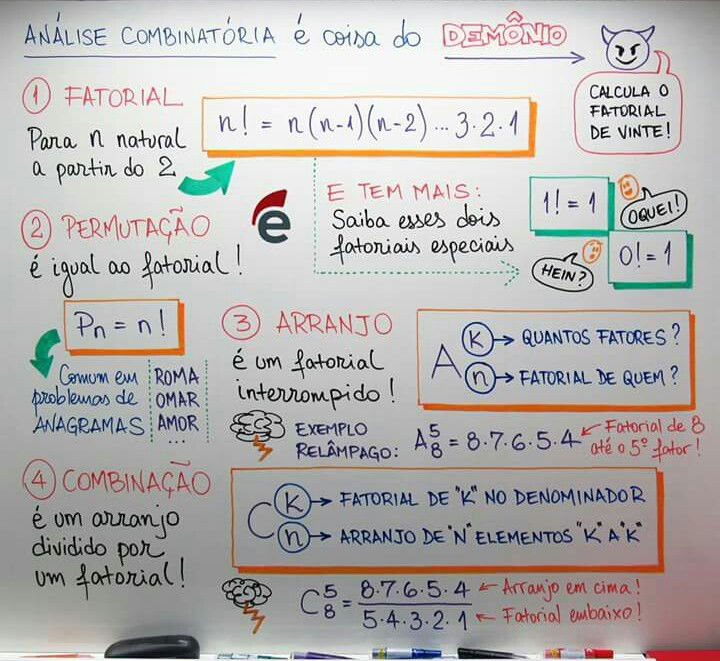 ANÁLISE COMBINATÓRIA é coisa do DEMÔNIO
CALCULA O
FATORIAL
DE VINTE!
1 FATORIAL
Para n natural
a partir do 2
n! = n(n-1)(n-2)...3·2·1
E TEM MAIS:
Saiba esses dois
fatoriais especiais
1! = 1
OQUEI!
0! = 1
HEIN?
e
2 PERMUTAÇÃO
é igual ao fatorial!
Pn = n!
Comum em
problemas de
ANAGRAMAS
ROMA
OMAR
AMOR
...
3 ARRANJO
é um fatorial
interrompido!
A
K → QUANTOS FATORES?
n → FATORIAL DE QUEM?
EXEMPLO
RELÂMPAGO:
A₈⁵ = 8·7·6·5·4
← Fatorial de 8
até o 5º fator!
4 COMBINAÇÃO
é um arranjo
dividido por
um fatorial!
C
K → FATORIAL DE "K" NO DENOMINADOR
n → ARRANJO DE "N" ELEMENTOS "K" A "K"
C₈⁵ =
8·7·6·5·4 ← Arranjo em cima!
5·4·3·2·1 ← Fatorial embaixo!